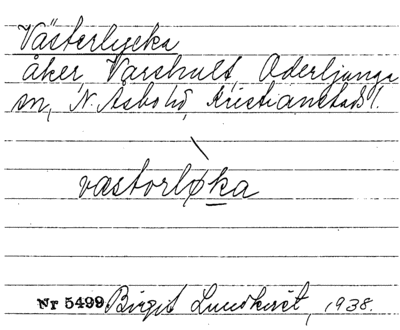 Västerlycka
åker, Varshult, Oderljunga
sn, N. Åsbo hd, Kristianstads l.
vastorløka
Nr 5499 Birgit Lundkvist, 1938.